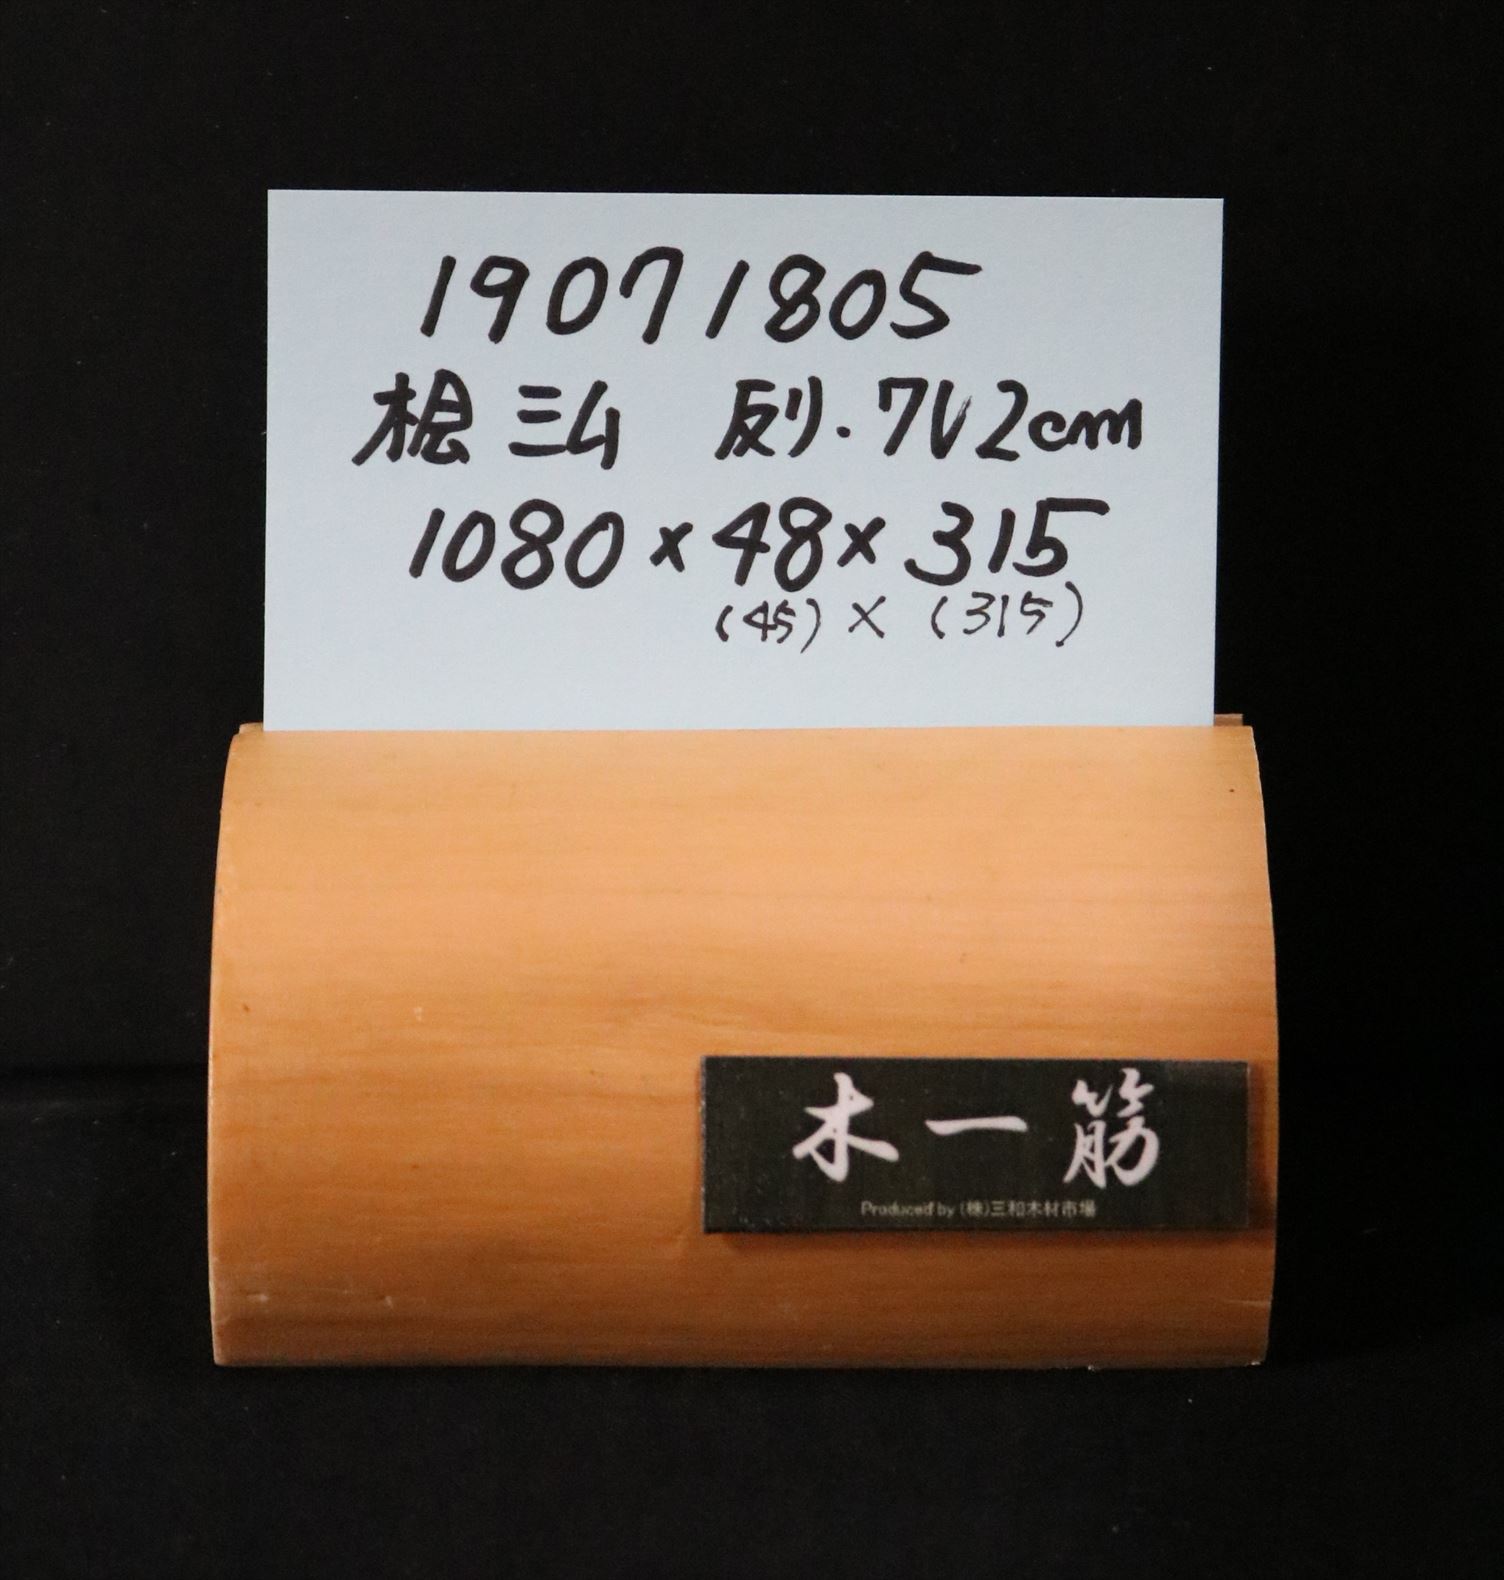 19071805
桧 ミム 反り.アレ2cm
1080×48×315
(45)×(315)
木一筋
Produced by (株)三和木材市場